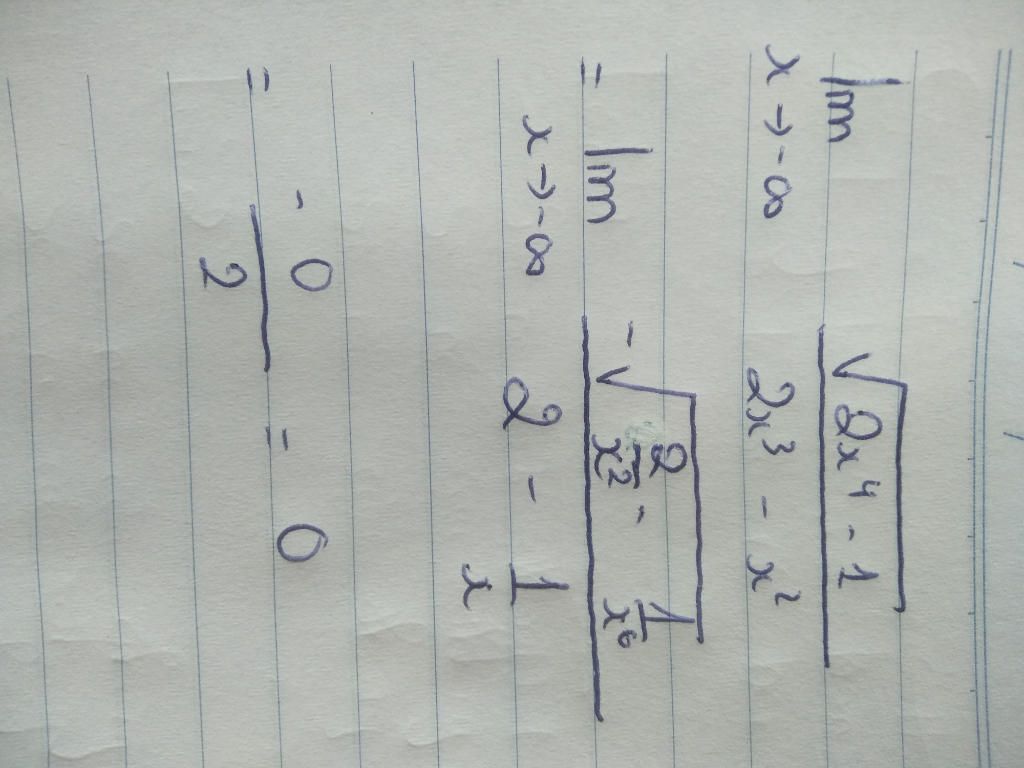 lim x→-∞ √(2x⁴ - 1) / (2x³ - x²)
= lim x→-∞ -√(2/x² - 1/x⁶) / (2 - 1/x)
= - 0/2 = 0